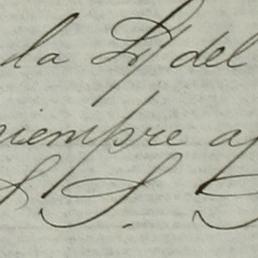 la Ly del
siempre a
S. S. S